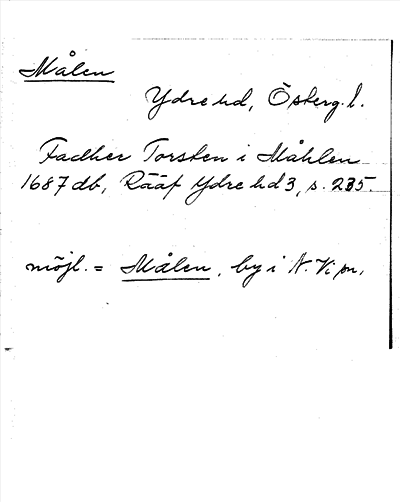 Målen
Ydre hd, Österg. l.
Fadher Torsten i Måhlen
1687 db, Rääf Ydre hd 3, s. 235.
möjl. = Målen, by i N. Vi sn,